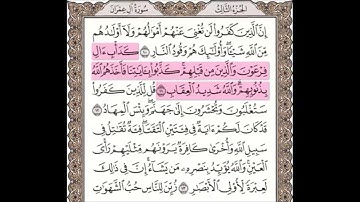 الجزء الثالث سورة آل عمران
إِنَّ الَّذِينَ كَفَرُوا لَن تُغْنِيَ عَنْهُمْ أَمْوَالُهُمْ وَلَا أَوْلَادُهُم
مِّنَ اللَّهِ شَيْئًا وَأُولَٰئِكَ هُمْ وَقُودُ النَّارِ ١٠ كَدَأْبِ آلِ
فِرْعَوْنَ وَالَّذِينَ مِن قَبْلِهِمْ كَذَّبُوا بِآيَاتِنَا فَأَخَذَهُمُ اللَّهُ
بِذُنُوبِهِمْ وَاللَّهُ شَدِيدُ الْعِقَابِ ١١ قُل لِّلَّذِينَ كَفَرُوا
سَتُغْلَبُونَ وَتُحْشَرُونَ إِلَىٰ جَهَنَّمَ وَبِئْسَ الْمِهَادُ ١٢
قَدْ كَانَ لَكُمْ آيَةٌ فِي فِئَتَيْنِ الْتَقَتَا فِئَةٌ تُقَاتِلُ فِي
سَبِيلِ اللَّهِ وَأُخْرَىٰ كَافِرَةٌ يَرَوْنَهُم مِّثْلَيْهِمْ رَأْيَ
الْعَيْنِ وَاللَّهُ يُؤَيِّدُ بِنَصْرِهِ مَن يَشَاءُ إِنَّ فِي ذَٰلِكَ
لَعِبْرَةً لِّأُولِي الْأَبْصَارِ ١٣ زُيِّنَ لِلنَّاسِ حُبُّ الشَّهَوَاتِ